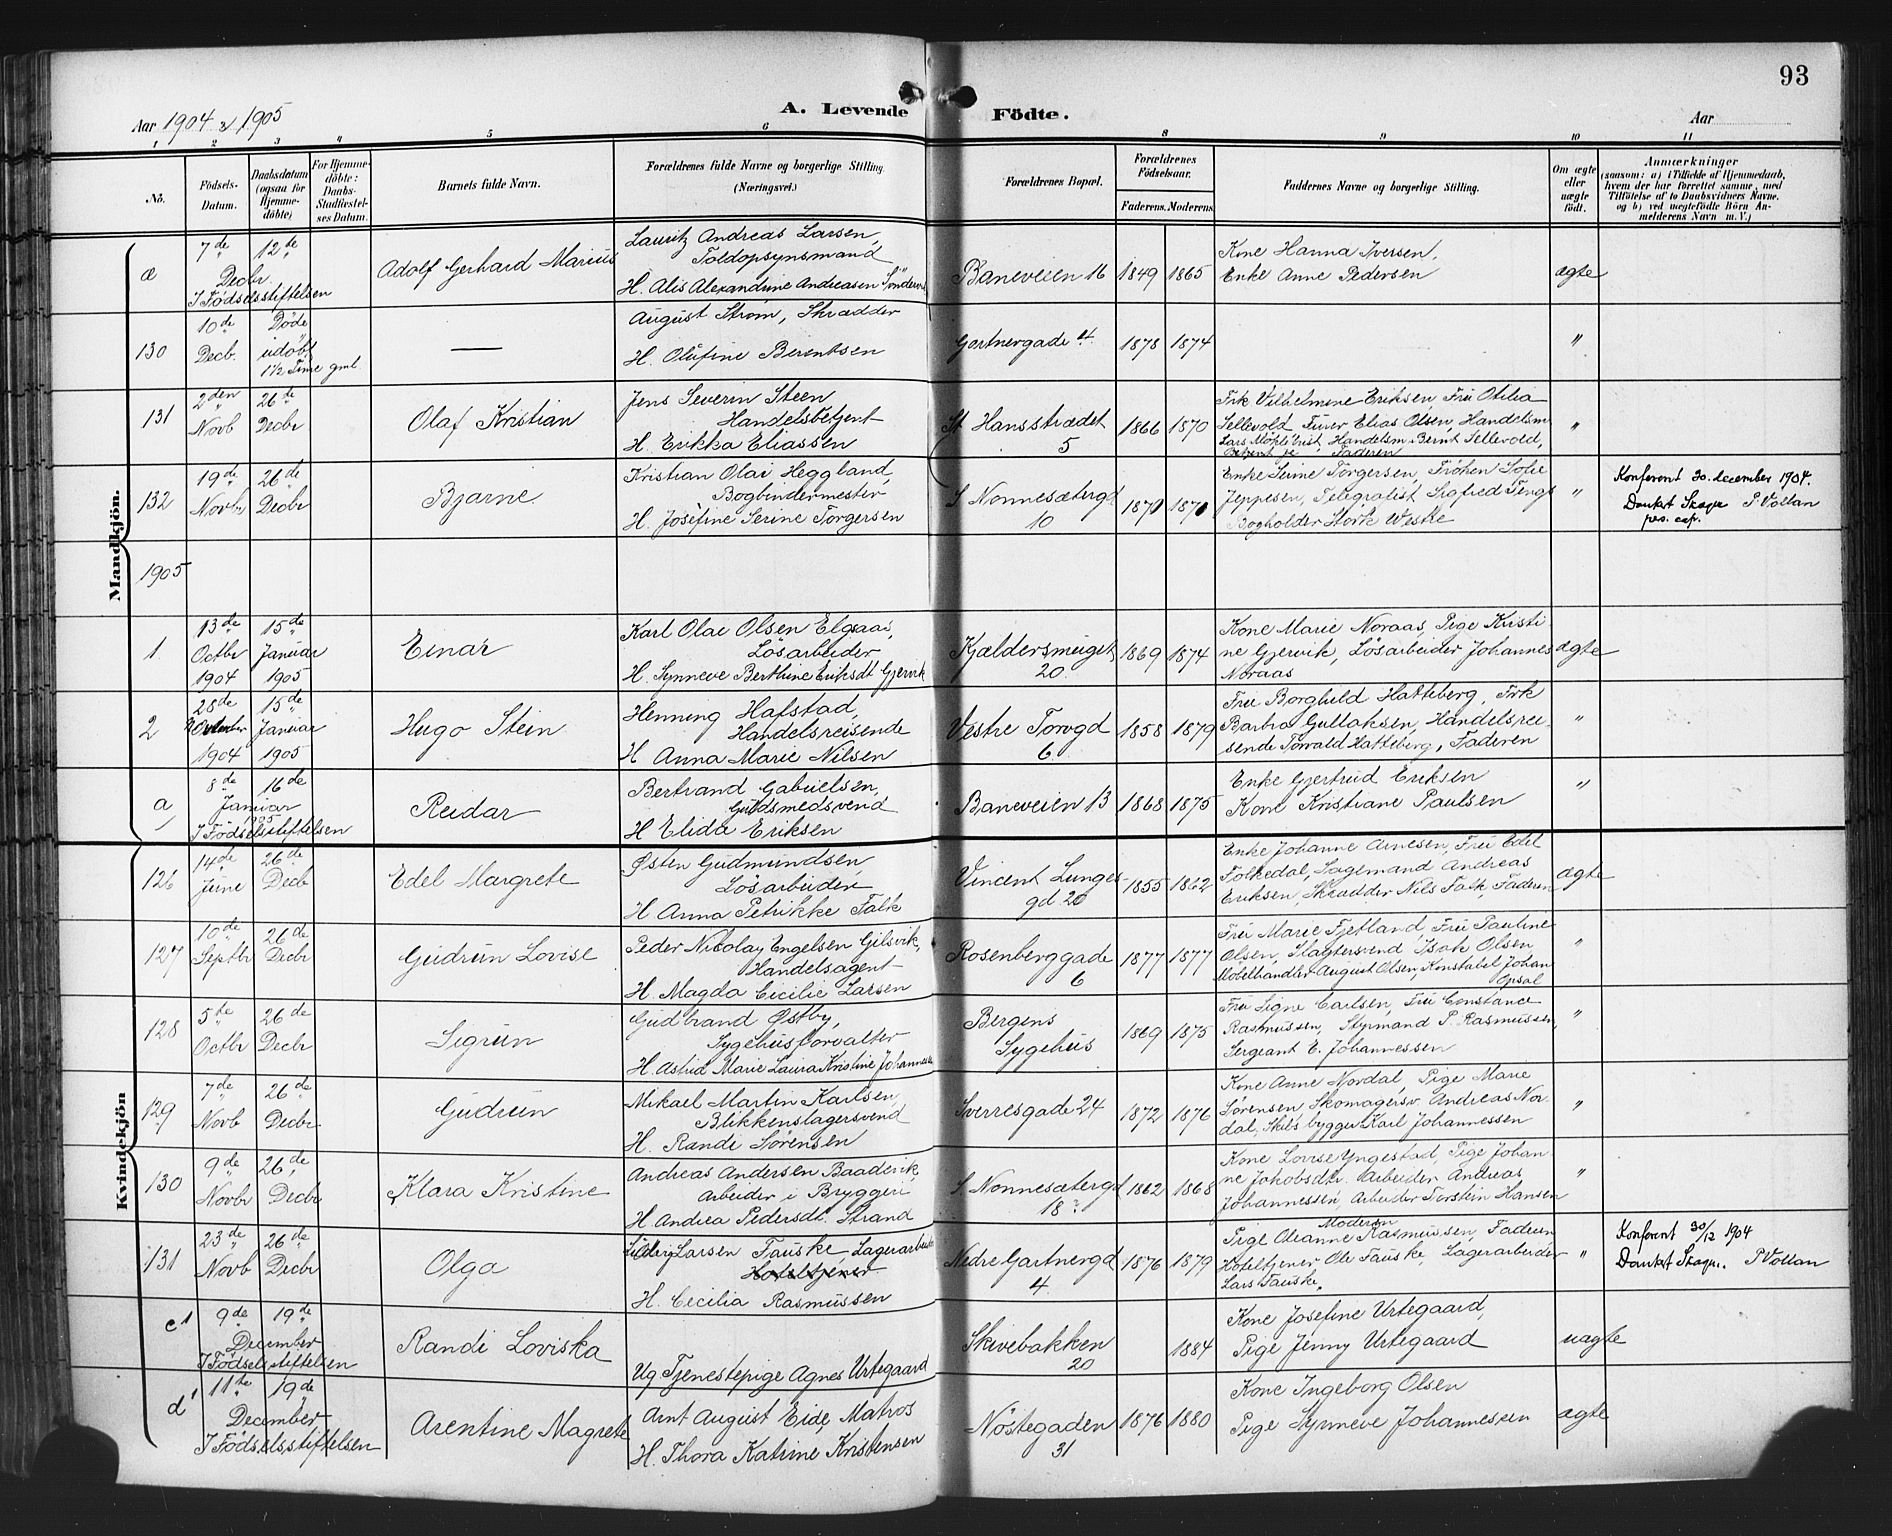 93
Aar 1904 & 1905
A. Levende Födte.
Aar
1 2 3 4 5 6 8 9 10 11
No.
Födsels-Datum.
Daabsdatum (ogsaa for Hjemme-döbte)
For Hjemme-döbte: Daabs-Stadfæstel-ses Datum.
Barnets fulde Navn.
Forældrenes fulde Navne og borgerlige Stilling (Næringsvei.)
Forældrenes Bopæl.
Forældrenes Födselsaar.
Faderens. Moderens.
Faddernes Navne og borgerlige Stilling.
Om ægte eller uægte födt.
Anmærkninger
(saasom: a) i Tilfælde af Hjemmedaab,
hvem der har forrettet samme, med
Tilföielse af to Daabsvidners Navne.
og b) ved uægtefödte Börn An-
melderens Navn m. V.)
Mandkjön.
æ
7de 12te
Decbr.
I Födselsstiftelsen
Adolf Gerhard Marius
Lauritz Andreas Larsen,
Toldopsynsmand
H. Alis Alexandrine Andreasen
Baneveien 16
1849 1865
Kone Hanna Iversen,
Enke Anne Pedersen
ægte
130
10de Decbr.
Døde udøbt
1½ Time gml.
—
August Strøm, Skrædder
H. Olufine Berentsen
Gartnergade 4
1878 1874
"
131
2den Novb
26de Decbr
Olaf Kristian
Jens Severin Steen
Handelsbetjent
H. Erikka Eliassen
St Hansstrædet
5
1866 1870
Frk Vilhelmine Eriksen, Fru Otilia
Sellevold, Elias Olsen, Handelsm
Handelsm. Bernt Sellevold,
Faderen
"
132
19de Novbr
26de Decbr
Bjarne
Kristian Olai Heggland,
Bogbindermester
H. Josefine Serine Torgersen
S Nonnesætergd
10
1870 1870
Enke Serine Torgersen, Frøken Sofie
Jeppesen, Telegrafist Sigfred
Bogholder Størk Westke
"
Konferert 30 december 1904.
Dankert Skagen P. Vollan
pers. cap.
1905
1
13de Octbr 1904
15de Januar 1905
Einar
Karl Olai Olsen Elgsaas,
Løsarbeider
H. Synneve Berthine Eriksdt Gjervik
Kjeldersmuget
20
1869 1874
Kone Marie Noraas, Pige Kristi
ne Gjervik, Løsarbeider Johannes
Noraas
ægte
2
28de 1904
15de Januar 1905
Hugo Stein
Henning Hafstad,
Handelsreisende
H Anna Marie Nilsen
Vestre Torvgd
6
1858 1879
Fru Borghild Hatteberg, Frk
Barbra Gullaksen, Handelsrei
sende Torvald Hatteberg, Faderen
"
a
8de 16de
Januar
1905
I Födselsstiftelsen
Reidar
Bertrand Gabrielsen,
Guldsmedsvend
H Elida Eriksen
Baneveien 13
1868 1875
Enke Gjertrud Eriksen
Kone Kristiane Paulsen
"
Kvindekjön
126
14de June
26de Decb
Edel Margrete
Østen Gudmundsen,
Løsarbeider
H Anna Petrikke Falk
Vincent Lunges
gd 20
1855 1862
Enke Johanne Arnesen, Fru Edel
Folkedal, Andreas
Eriksen, Skrædder Nils Falk, Faderen
ægte
127
10de Septbr
26de Decbr
Gudrun Lovise
Peder Nicolay Engelsen Gilsvik,
Handelsagent
H. Magda Cecilie Larsen
Rosenberggade
6
1877 1877
Fru Marie Fjetland, Fru Pauline
Olsen, Slagtersvend Isak Olsen
Møbelhandler August Olsen, Konstabel Johan
Opsal
"
128
5te Octbr
26de Decbr
Sigrun
Gudbrand Østby,
Sygehusforvalter
H. Astrid Marie Laura Kristine Johannessen
Bergens
Sygehus
1869 1875
Fru Signe Carlsen, Fru Constance
Rasmussen, Styrmand P. Rasmussen,
Sergeant E. Johannessen
"
129
7de Novb
26de Decbr
Gudrun
Mikael Martin Karlsen
Blikkenslagersvend
H. Randi Sørensen
Sverresgade 24
1872 1876
Kone Anne Nordal, Pige Marie
Sørensen, Skomagersv. Andreas Nor-
dal, Skibsbygger Karl Johannessen
"
130
9de Novbr
26de Decbr
Klara Kristine
Andreas Andersen Baadsvik,
Arbeider i Bryggeri
H Andrea Pedersdt. Strand
S Nonnesætergd
18
1862 1868
Kone Lovise Yngestad, Pige Johan
ne Jakobsdtr. Arbeider Andreas
Johannessen, Arbeider Torstein Hansen
"
131
23de Novb
26de Decbr
Olga
Ludvig Larsen Fauske, Lagerarbeider
Hoteltjener
H. Cecilia Rasmussen
Nedre Gartnergd
4
1876 1879
Moderen
Pige Oleanne Rasmussen, Faderen
Hoteltjener Ole Fauske, Lagerarbeider
Lars Fauske.
"
Konferert 30/12 1904
Dankert Skagen. P Vollan
c1
9de 19de
December
I Födselsstiftelsen
Randi Loviska
Ug Tjenestepige Agnes Urtegaard
Skivebakken
20
1884
Kone Josefine Urtegaard,
Pige Jenny Urtegaard
uægte
d1
11te 19de
December
I Födselsstiftelsen
Arentine Magrete
Arnt August Eide, Matros
H. Thora Katrine Kristensen
Nøstegaden
31
1876 1880
Kone Ingeborg Olsen
Pige Synneve Johannessen
ægte